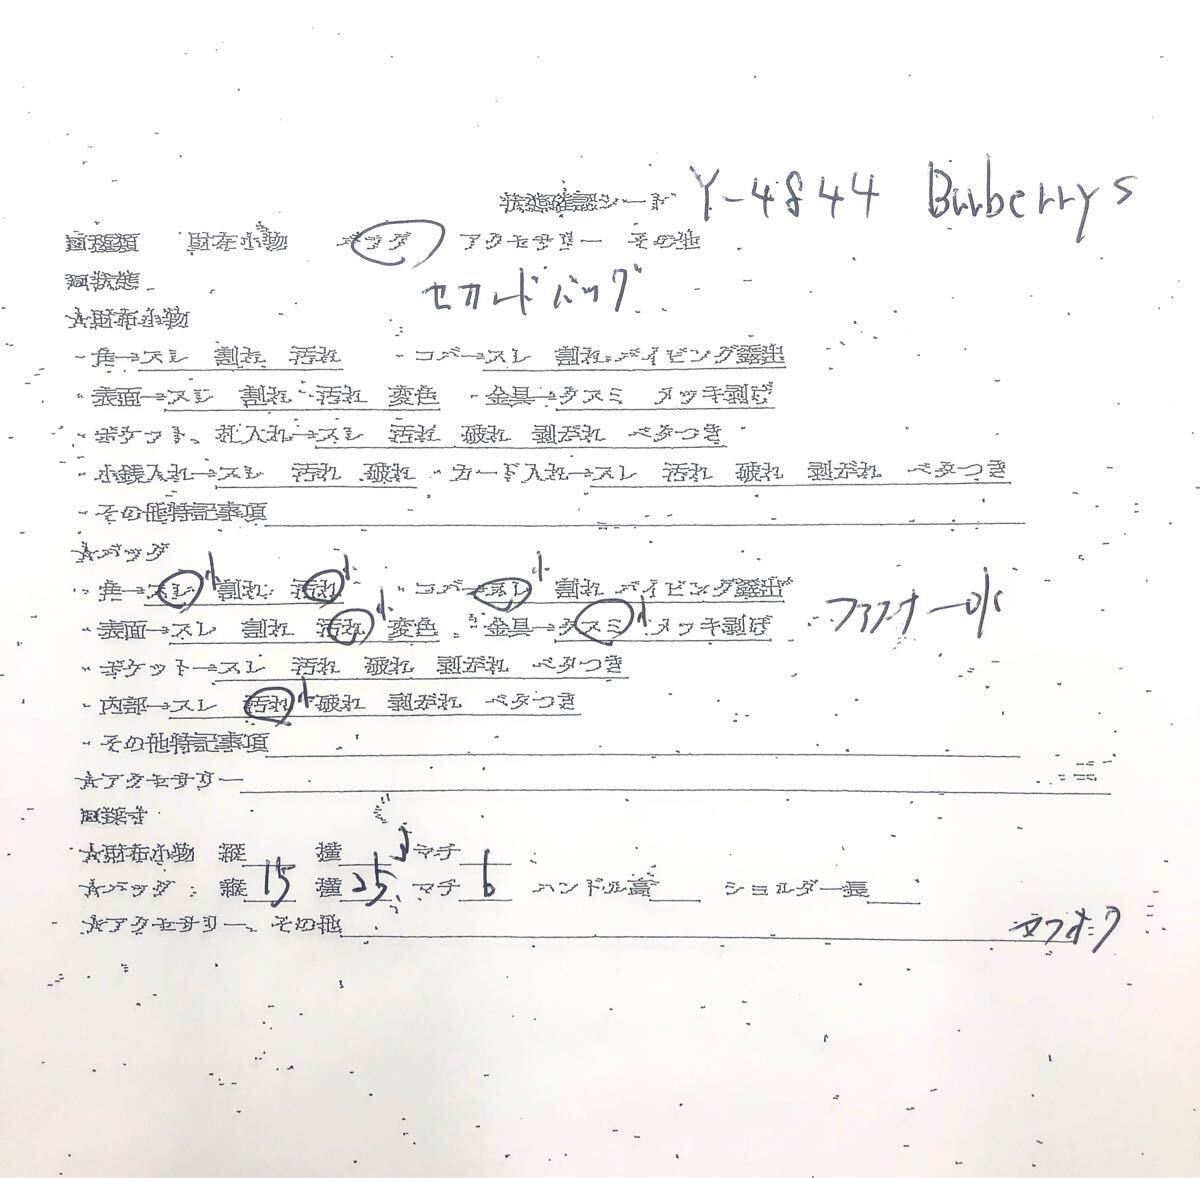 状態確認シート Y-4844 Burberrys
回種類 財布小物 バッグ アクセサリー その他
回状態
セカンドバッグ
☆財布小物
・角→スレ 割れ 汚れ ・コバ→スレ 割れ パイピング露出
・表面→スレ 割れ 汚れ 変色 ・金具→クスミ メッキ剥げ
・ポケット、札入れ→スレ 汚れ 破れ 剥がれ ベタつき
・小銭入れ→スレ 汚れ 破れ ・カード入れ→スレ 汚れ 破れ 剥がれ ベタつき
・その他特記事項
☆バッグ
・角→スレ小 割れ 汚れ小 ・コバ→スレ小 割れ パイピング露出
・表面→スレ 割れ 汚れ小 変色 ・金具→クスミ小 メッキ剥げ ファスナー
・ポケット→スレ 汚れ 破れ 剥がれ ベタつき
・内部→スレ 汚れ小 破れ 剥がれ ベタつき
・その他特記事項
☆アクセサリー
回採寸
☆財布小物 縦 横 マチ
☆バッグ: 縦15 横25 マチ6 ハンドル高 ショルダー長
☆アクセサリー、その他